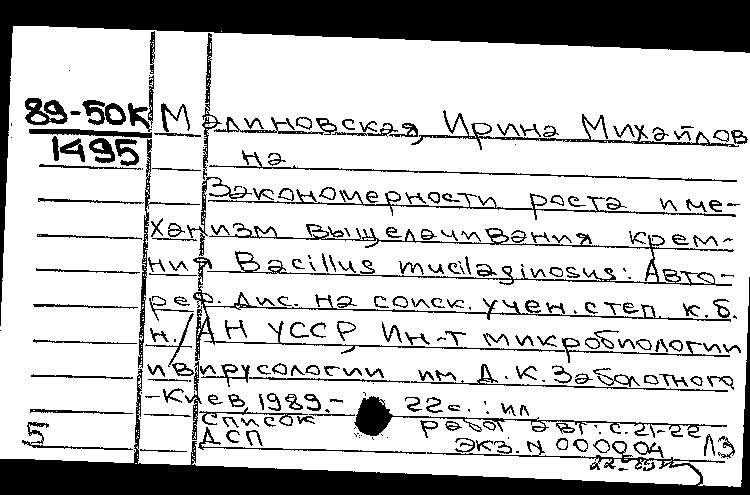 89-50К Малиновская, Ирина Михайлов
1495 на.
Закономерности роста и ме-
ханизм выщелачивания крем-
ния Bacillus mucilaginosus: Авто-
реф. дис. на соиск. учен. степ. к.б.
н./АН УССР, Ин-т микробиологии
и вирусологии им. Д.К. Заболотного
-Киев, 1989.- 22с.: ил
список работ авт: с.21-22
5 ДСП экз. N 000004 ЛЗ